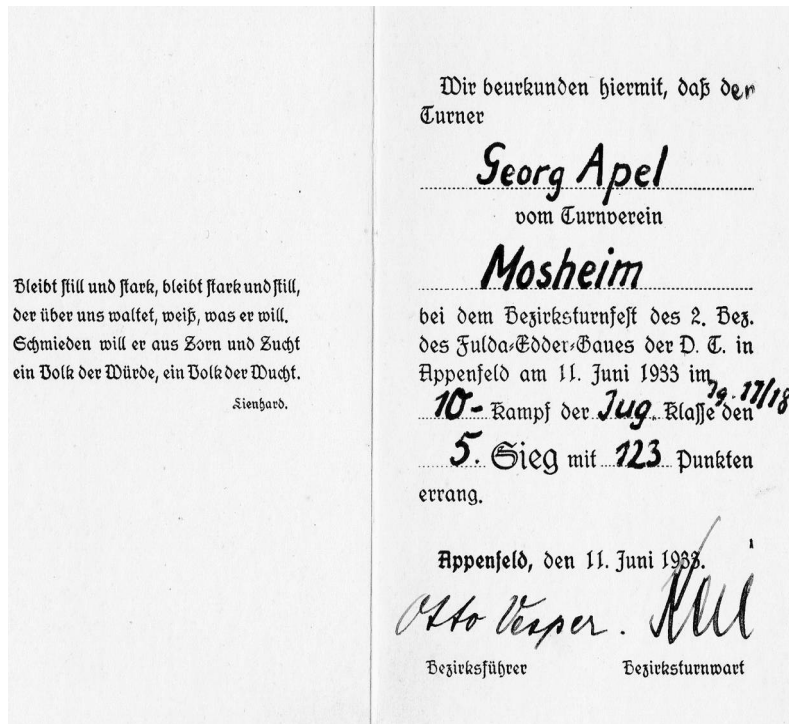 Bleibt still und stark, bleibt stark und still,
der über uns waltet, weiß, was er will.
Schmieden will er aus Zorn und Zucht
ein Volk der Würde, ein Volk der Wucht.
Lienhard.
Wir beurkunden hiermit, daß der
Turner
Georg Apel
vom Turnverein
Mosheim
bei dem Bezirksturnfest des 2. Bez.
des Fulda-Edder-Gaues der D. T. in
Appenfeld am 11. Juni 1933 im
10- Kampf der Jug. Klasse Jg. 17/18 den
5. Sieg mit 123 Punkten
errang.
Appenfeld, den 11. Juni 1933.
Otto Vesper.
Bezirksführer Bezirksturnwart